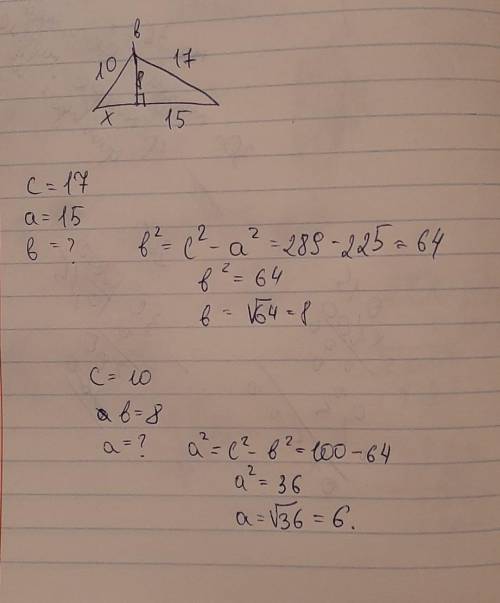 в
10 17
в
x 15
c = 17
a = 15
в = ?
в² = c² - a² = 289 - 225 = 64
в² = 64
в = √64 = 8
c = 10
в = 8
a = ?
a² = c² - в² = 100 - 64
a² = 36
a = √36 = 6.